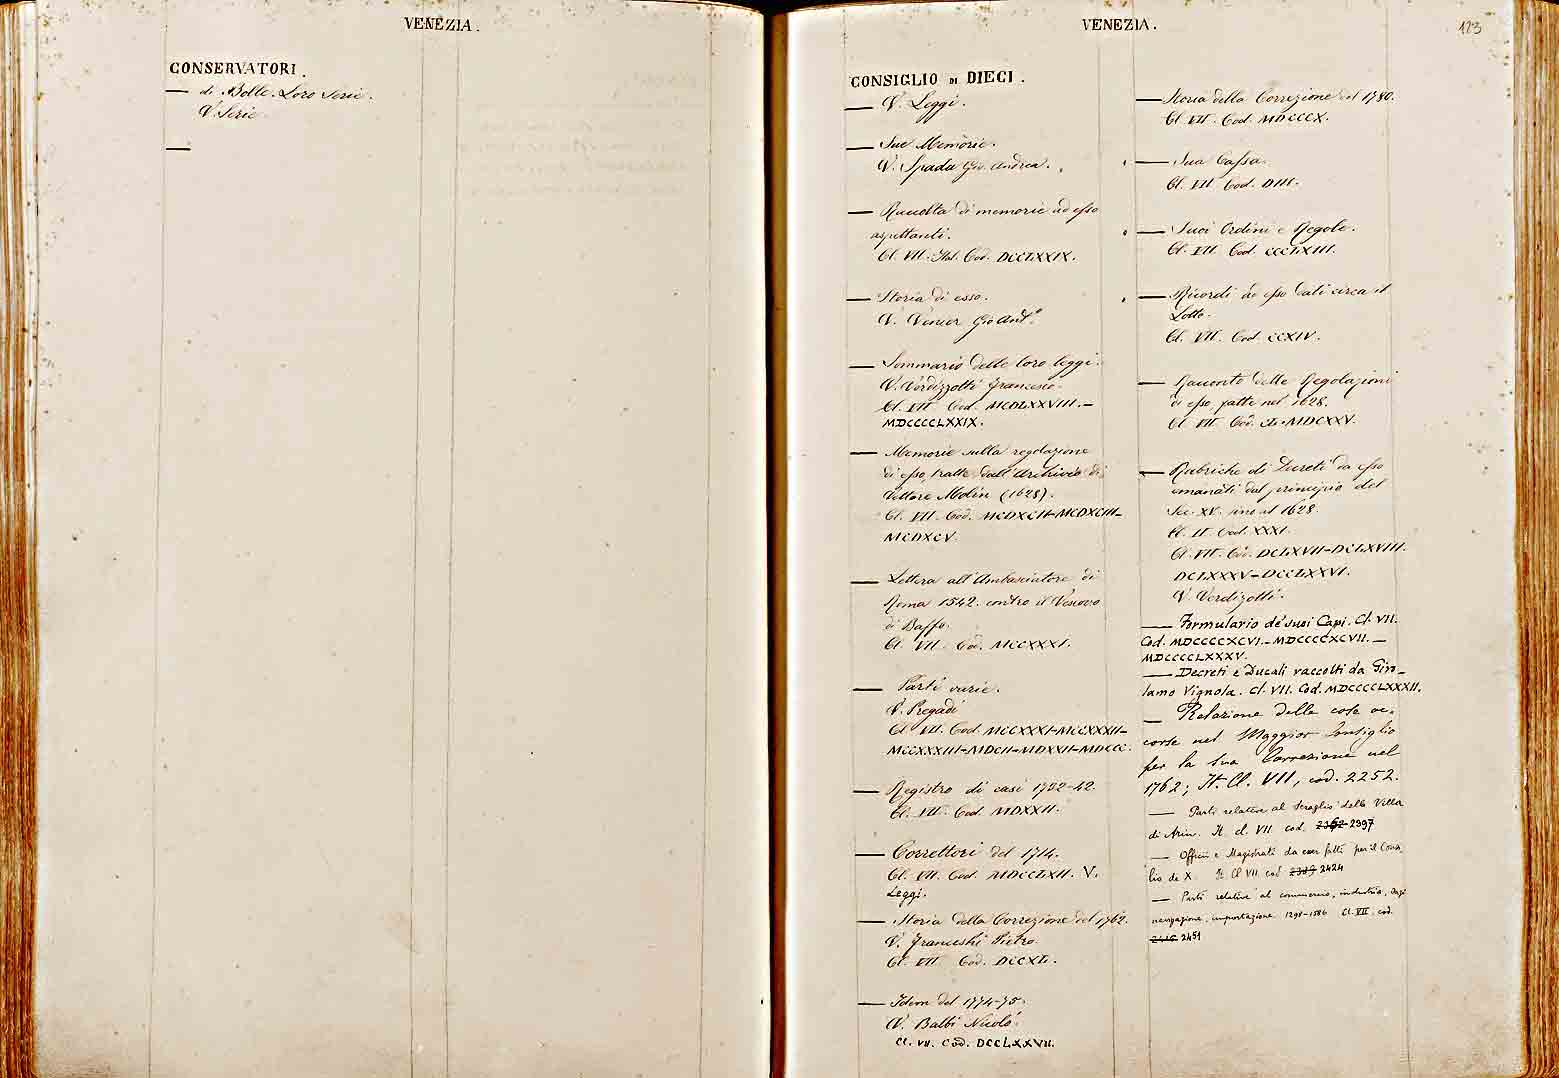 VENEZIA.
CONSERVATORI.
— di Bolle. Loro Serie.
V. Serie.
—
VENEZIA.
123
CONSIGLIO DI DIECI.
— V. Leggi.
— Sue Memorie.
V. Spada Gio. Andrea.
— Raccolta di memorie ad esso
aspettanti.
Cl. VII. Ital. Cod. DCCLXXIX.
— Storia di esso.
V. Venier Gio Ant.o
— Sommario delle loro leggi.
V. Verdizzotti Francesco.
Cl. VII. Cod. MCDLXXVIII.—
MDCCCCLXXIX.
— Memorie sulla regolazione
di esso, tratte dall'Archivio di
Vettore Molin (1628).
Cl. VII. Cod. MCDXCII–MCDXCIII–
MCDXCV.
— Lettera all'Ambasciatore di
Roma 1542. contro il Vescovo
di Baffo.
Cl. VII. Cod. MCCXXXI.
— Parti varie.
V. Pregadi
Cl. VII. Cod. MCCXXXI–MCCXXXII–
MCCXXXIII–MDCII–MDXXII–MDCCC.
— Registro di casi 1732-42.
Cl. VII. Cod. MDXXII.
— Correttori del 1714.
Cl. VII. Cod. MDCCLXII. V.
Leggi.
— Storia della Correzione del 1762.
V. Franceschi Pietro.
Cl. VII. Cod. DCCXL.
— Idem del 1774-75.
V. Balbi Nicolò.
Cl. VII. Cod. DCCLXXVII.
— Storia della Correzione del 1780.
Cl. VII. Cod. MDCCCX.
— Sua Cassa.
Cl. VII. Cod. DIII.
— Suoi Ordini e Regole.
Cl. VII. Cod. CCCLXIII.
— Ricordi ad esso dati circa il
Lotto.
Cl. VII. Cod. CCXIV.
— Racconto delle Regolazioni
di esso fatte nel 1628.
Cl. VII. Cod. MDCXXV.
— Rubriche di Decreti da esso
emanati dal principio del
Sec. XV. sino al 1628.
Cl. II. Cod. XXXI.
Cl. VII. Cod. DCLXVII–DCLXVIII.
DCLXXXV–DCCLXXVI.
V. Verdizotti.
— Formulario de' suoi Capi. Cl. VII.
Cod. MDCCCCXCVI.–MDCCCCXCVII.–
MDCCCCLXXXV.
— Decreti e Ducali raccolti da Giro-
lamo Vignola. Cl. VII. Cod. MDCCCCLXXXII.
— Relazione delle cose oc-
corse nel Maggior Consiglio
per la sua Correzione nel
1762; It. Cl. VII, cod. 2252.
— Parti relative al Seraglio della Villa
di Arin. It. cl. VII cod. 2362 2397
— Officii e Magistrati da esser fatti per il Consi
lio de X. It. Cl VII. cod 2389 2424
— Parti relative al commercio, industria, dazi
navigazione, importazione 1298-1586 Cl. VII. cod.
2416 2451